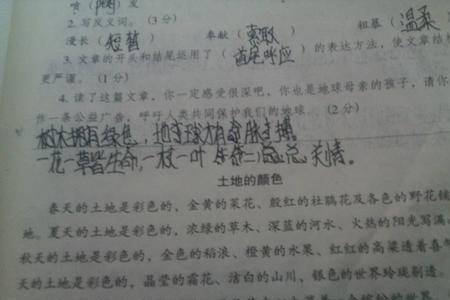 喷（ ）发
2. 写反义词。（3分）
漫长（短暂） 奉献（索取） 粗暴（温柔
3. 文章的开头和结尾运用了（首尾呼应）的表达方法，使文章结构
更严谨。（1分）
4. 读了这篇文章，你一定感受很深吧，你也是地球母亲的孩子，请你
作一条公益广告，呼吁人类共同保护我们的地球。（2分）
树木拥有绿色，地球才有命脉
一花一草皆生命，一枝一叶 总 总关情。
土地的颜色
春天的土地是彩色的，金黄的菜花、殷红的杜鹃花及各色的野花铺
地。夏天的土地是彩色的，浓绿的草木、深蓝的河水、火热的阳光写满
秋天的土地是彩色的，金色的稻浪、橙黄的水果、红红的高粱透着喜气
天的土地是彩色的，晶莹的霜花、洁白的山川，银色的世界玲珑剔透。